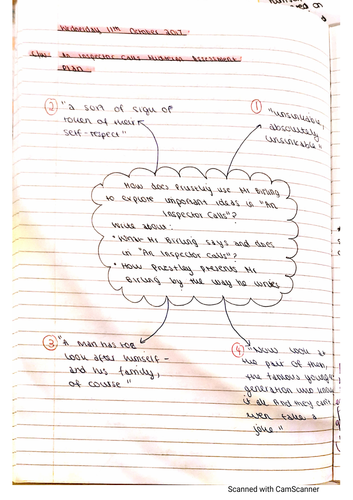 Wednesday 11th October 2017
An Inspector Calls Midterm Assessment
Plan
② "a sort of sign or
token of their
self-respect"
① "unsinkable,
absolutely
unsinkable"
How does Priestley use Mr Birling
to explore important ideas in "An
Inspector Calls"?
Write about:
• What Mr Birling says and does
in "An Inspector Calls"?
• How Priestley presents Mr
Birling by the way he writes
③ "A man has to
look after himself -
and his family,
of course"
④ "Now look at
the pair of them,
the famous younger
generation who know
it all. And they can't
even take a
joke"
Scanned with CamScanner